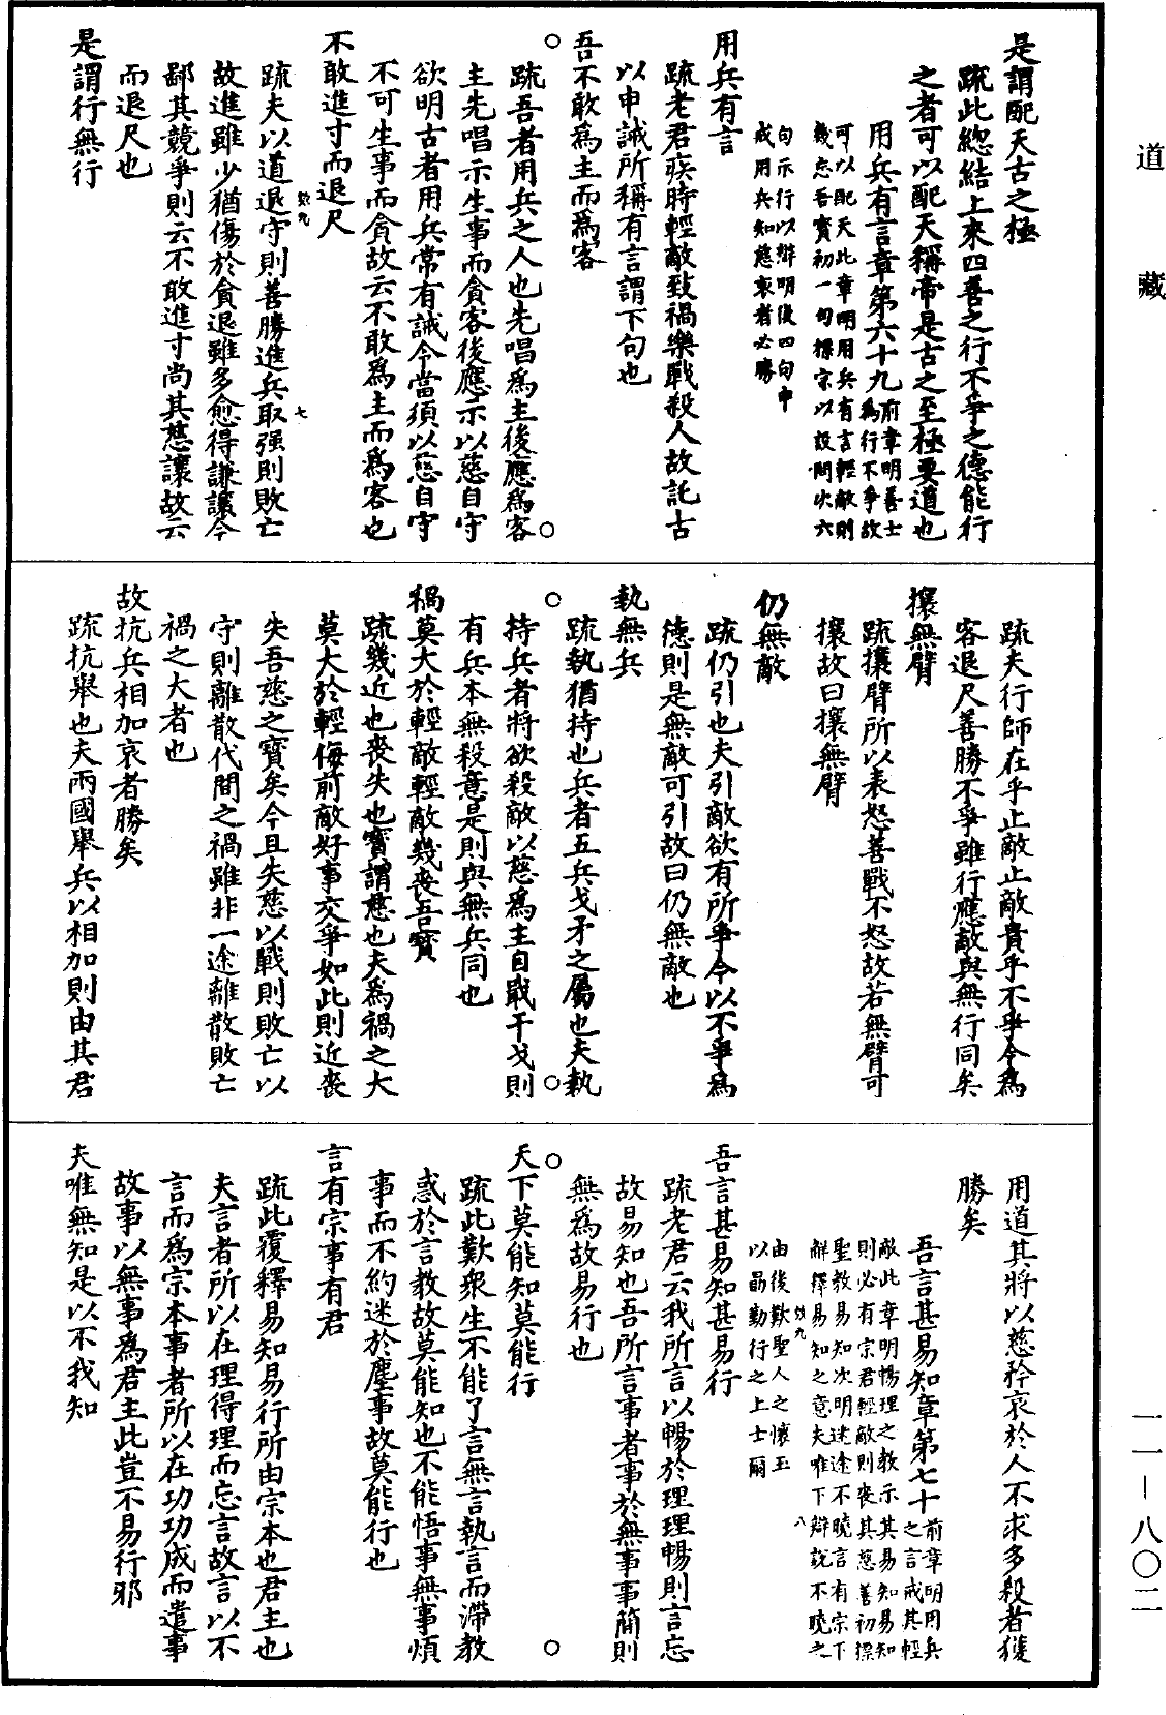 道藏
是謂配天古之極
疏此總結上來四善之行不爭之德能行
之者可以配天稱帝是古之至極要道也
用兵有言章第六十九
前章明善士
為行不爭故
可以配天此章明用兵有言輕敵則
幾忘吾寶初一句標宗以設問次六
句示行以辯明後四句申
戒用兵知慈哀者必勝
用兵有言
疏老君疾時輕敵致禍樂戰殺人故託古
以申誡所稱有言謂下句也
吾不敢為主而為客
疏吾者用兵之人也先唱為主後應為客
主先唱示生事而貪客後應示以慈自守
欲明古者用兵常有誡令當須以慈自守
不可生事而貪故云不敢為主而為客也
不敢進寸而退尺
疏夫以道退守則善勝進兵取强則敗亡
故進雖少猶傷於貪退雖多愈得謙讓今
鄙其競爭則云不敢進寸尚其慈讓故云
而退尺也
是謂行無行
疏夫行師在乎止敵止敵貴乎不爭今為
客退尺善勝不爭雖行應敵與無行同矣
攘無臂
疏攘臂所以表怒善戰不怒故若無臂可
攘故曰攘無臂
仍無敵
疏仍引也夫引敵欲有所爭今以不爭為
德則是無敵可引故曰仍無敵也
執無兵
疏執猶持也兵者五兵戈矛之屬也夫執
持兵者將欲殺敵以慈為主自戢干戈則
有兵本無殺意是則與無兵同也
禍莫大於輕敵輕敵幾喪吾寶
疏幾近也喪失也寶謂慈也夫為禍之大
莫大於輕侮前敵好事交爭如此則近喪
失吾慈之寶矣今且失慈以戰則敗亡以
守則離散代間之禍雖非一途離散敗亡
禍之大者也
故抗兵相加哀者勝矣
疏抗舉也夫兩國舉兵以相加則由其君
用道其將以慈矜哀於人不求多殺者獲
勝矣
吾言甚易知章第七十
前章明用兵
之言戒其輕
敵此章明暢理之教示其易知易知
則必有宗君輕敵則喪其慈善初標
聖教易知次明迷途不曉言有宗下
解釋易知之意夫唯下辯說不曉之
由後歎聖人之懷玉
以勗勤行之上士爾
吾言甚易知甚易行
疏老君云我所言以暢於理理暢則言忘
故易知也吾所言事者事於無事事簡則
無為故易行也
天下莫能知莫能行
疏此歎衆生不能了言無言執言而滯教
惑於言教故莫能知也不能悟事無事煩
事而不約迷於塵事故莫能行也
言有宗事有君
疏此覆釋易知易行所由宗本也君主也
夫言者所以在理得理而忘言故言以不
言而為宗本事者所以在功功成而遣事
故事以無事為君主此豈不易行邪
夫唯無知是以不我知
一一—八〇二